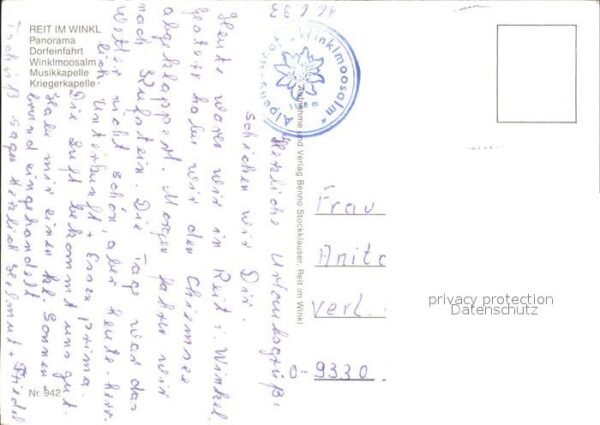 REIT IM WINKL
Panorama
Dorfeinfahrt
Winklmoosalm
Musikkapelle
Kriegerkapelle
16.6.93
Herzliche Urlaubsgrüße
schicken wir Dir.
Heute waren wir in Reit i. Winkel
gestern haben wir den Chiemsee
abgeklappert. Morgen fahren wir
nach Kufstein. Die Tage war das
Wetter nicht schön, aber heute herr-
lich. Unterkunft + Essen prima.
Die Luft bekommt uns gut.
Habe mir einen kl. Sonnen-
brand eingehandelt.
Tschüß sagen herzlich Helmut + Friedel
Alpengasthof "Winklmoosalm"
Aufnahme und Verlag Benno Stockklauser, Reit im Winkl
Frau
Anita
Verl.
O-9330
privacy protection
Datenschutz
Nr. 942